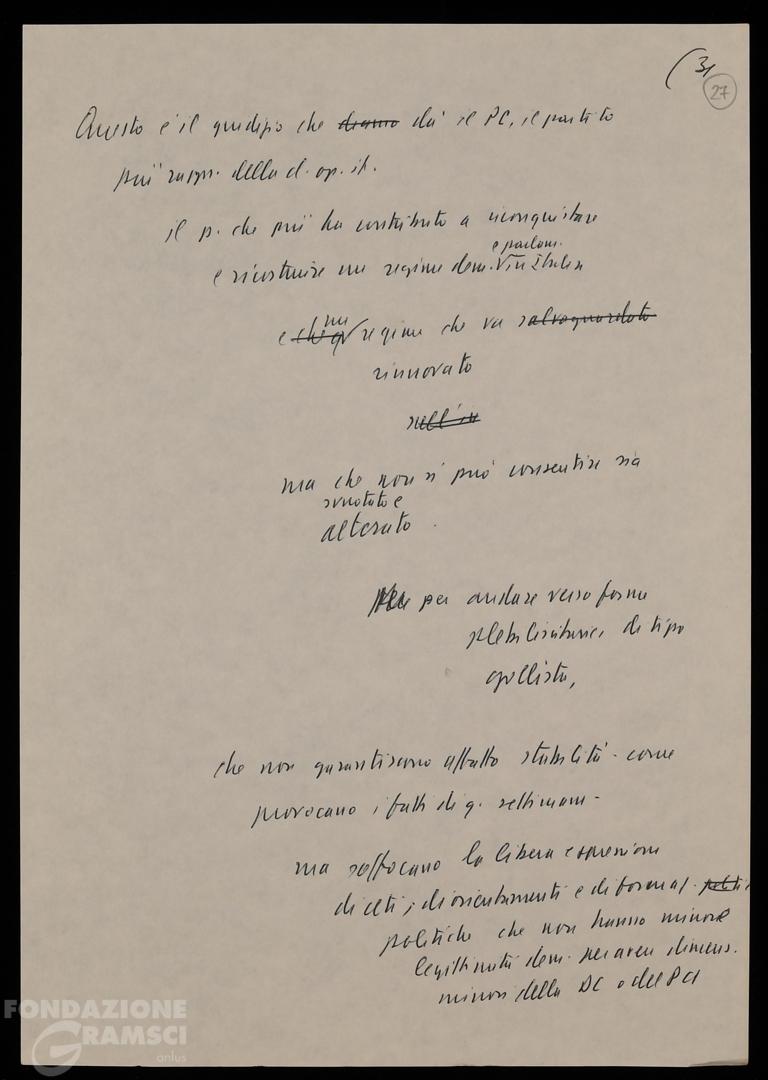 (31
27
Questo è il giudizio che diamo dà il PC, il partito
più rappr. della cl. op. it.
il p. che più ha contribuito a riconquistare
e parlam.
e ricostruire un regime dem. in Italia
un
e che regime che va salvaguardato
rinnovato
nell'in
ma che non si può consentire sia
svuotato e
alterato.
per andare verso forme
plebiscitarie, di tipo
gollista,
che non garantiscono affatto stabilità - come
provocano i fatti di q. settimane -
ma soffocano la libera espressione
di ceti, di orientamenti e di formaz. politi
politiche che non hanno minore
legittimità dem. per avere dimens.
minori della DC o del PCI
FONDAZIONE
GRAMSCI
onlus